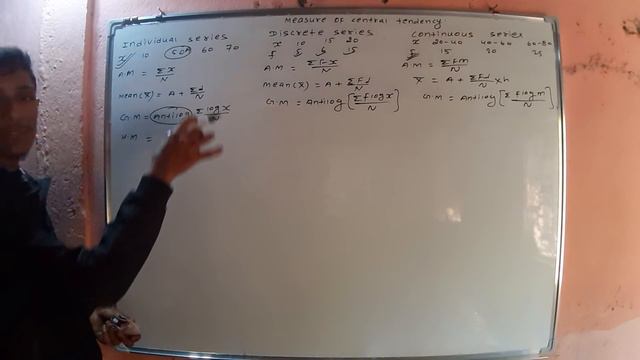 Measure of central tendency
Individual series
x 10 50A 60 70
A.M = Σx/N
Mean(x̄) = A + Σd/N
G.M = Antilog Σlogx/N
H.M =
Discrete series
x 10 15 20
f 5 5 15
A.M = Σf.x/N
Mean(x̄) = A + Σfd/N
G.M = Antilog [Σflogx/N]
Continuous series
x 20-40 40-60 60-80
f 15 20 25
A.M = Σfm/N
x̄ = A + Σfd/N xh
G.M = Antilog [Σflogm/N]